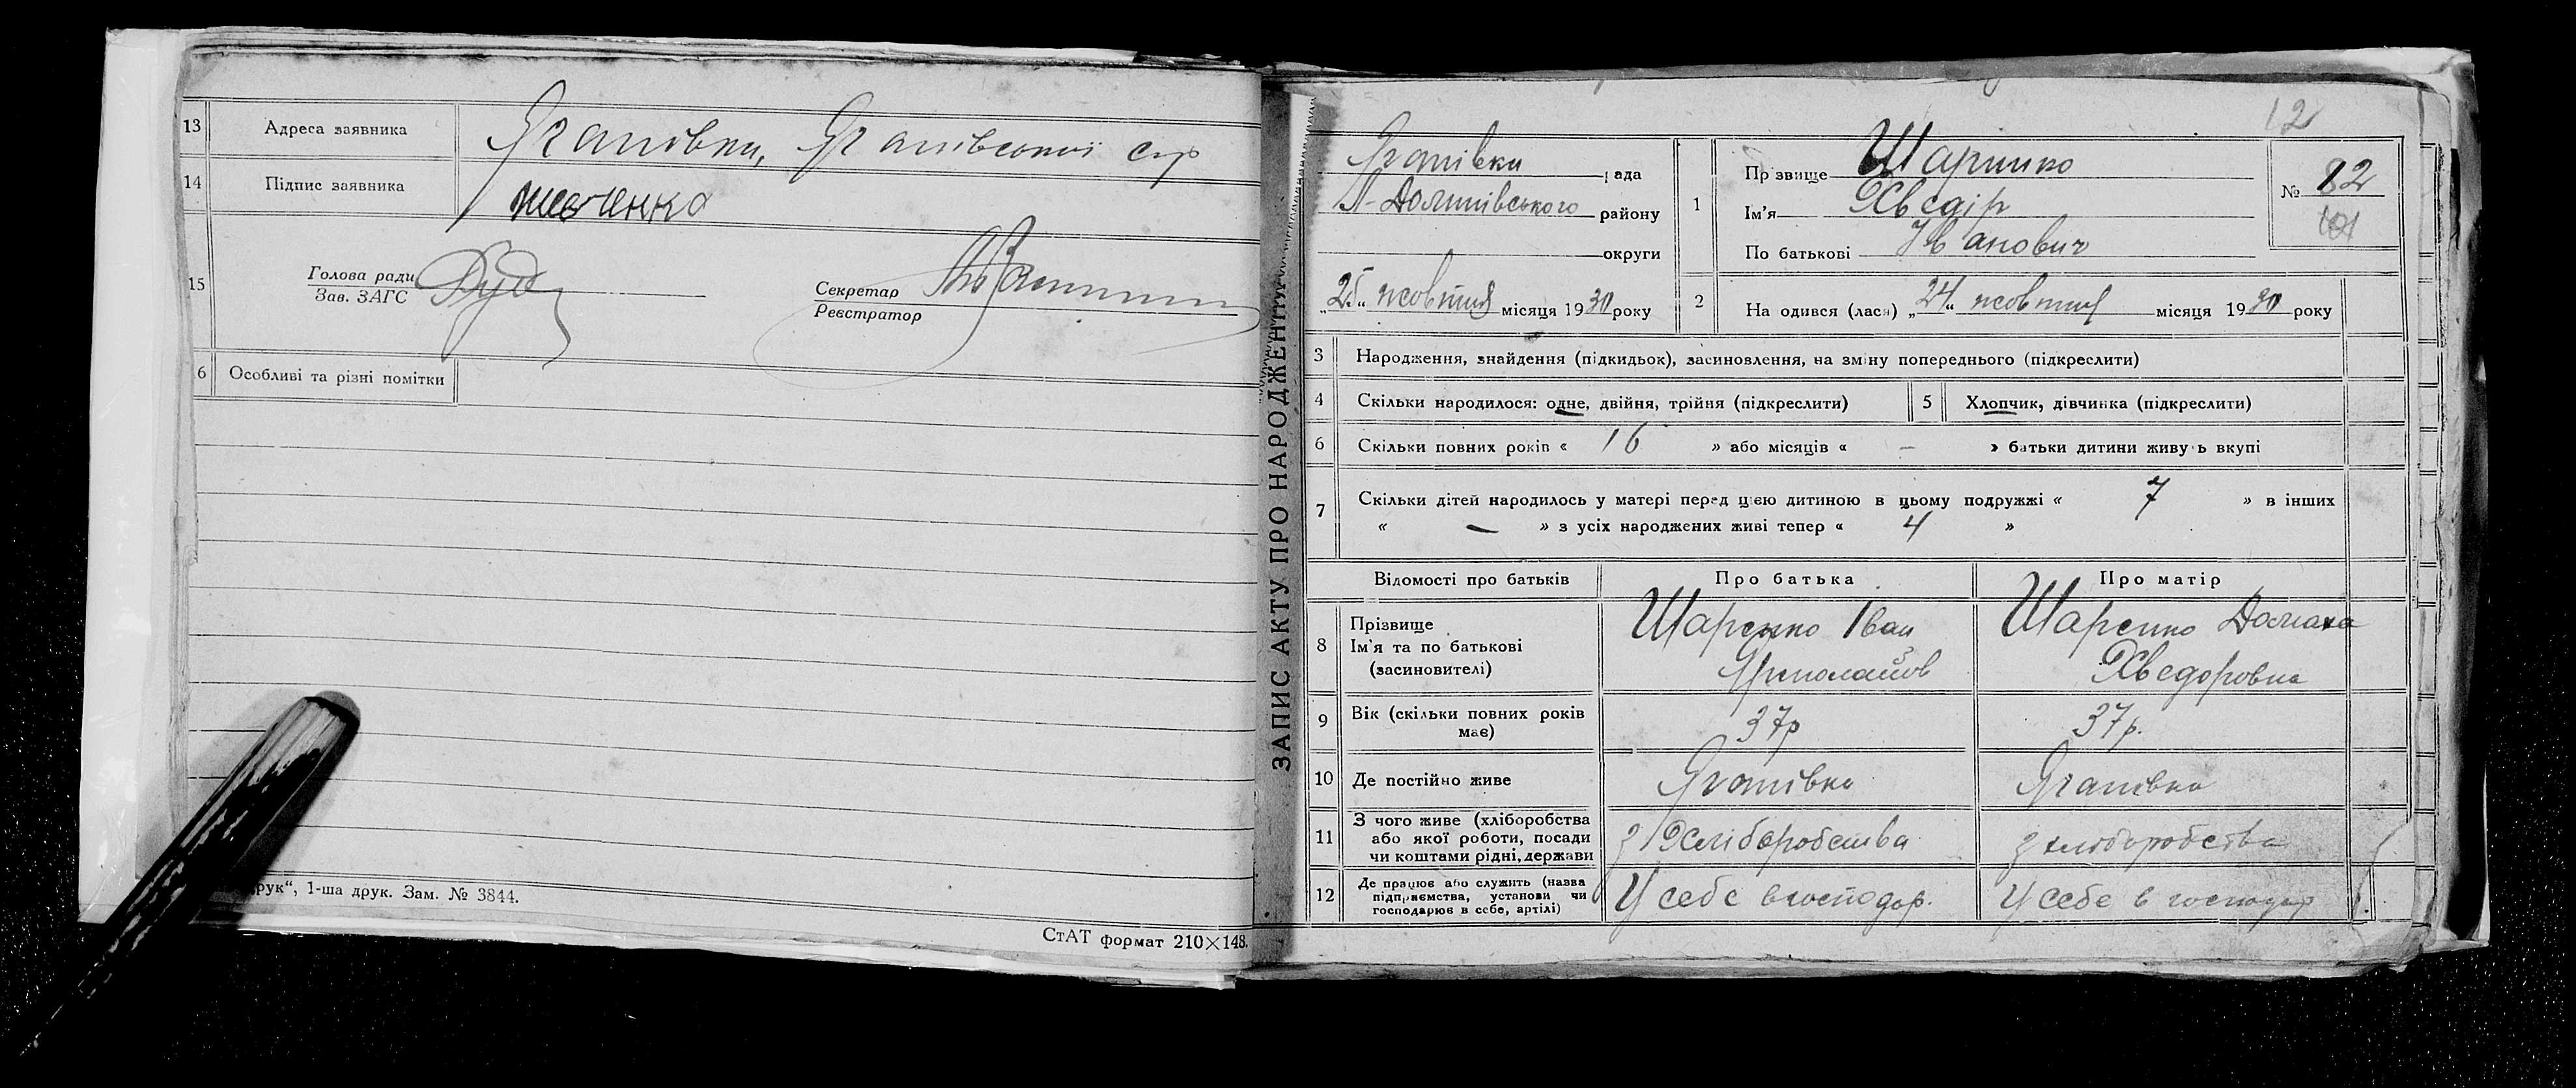 13 Адреса заявника Яганівка, Яганівської с/р
14 Підпис заявника
15 Голова ради
Зав. ЗАГС
Секретар
Реєстратор
6 Особливі та різні помітки
друк“, 1-ша друк. Зам. № 3844.
СтАТ формат 210×148.
ЗАПИС АКТУ ПРО НАРОДЖЕННЯ
12
Яганівка рада
району
округи
„25“ жовтня місяця 1930 року
1 Прізвище Шаренко
Ім'я Хведір
По батькові Іванович
№ 12
2 Народився (лася) „24“ жовтня місяця 1930 року
3 Народження, знайдення (підкидьок), засиновлення, на зміну попереднього (підкреслити)
4 Скільки народилося: одне, двійня, трійня (підкреслити) 5 Хлопчик, дівчинка (підкреслити)
6 Скільки повних років « 16 » або місяців « – » батьки дитини живуть вкупі
7 Скільки дітей народилось у матері перед цією дитиною в цьому подружжі « 7 » в інших
« – » з усіх народжених живі тепер « 4 »
Відомості про батьків Про батька Про матір
8 Прізвище Ім'я та по батькові (засиновителі) Шаренко Іван Шаренко Домаха
Хведоровна
9 Вік (скільки повних років має) 37р 37р.
10 Де постійно живе Яганівка Яганівка
11 З чого живе (хліборобства або якої роботи, посади чи коштами рідні, держави з Хліборобства з хліборобства
12 Де працює або служить (назва підприємства, установи чи господарює в себе, артілі) У себе в господар. У себе в господар